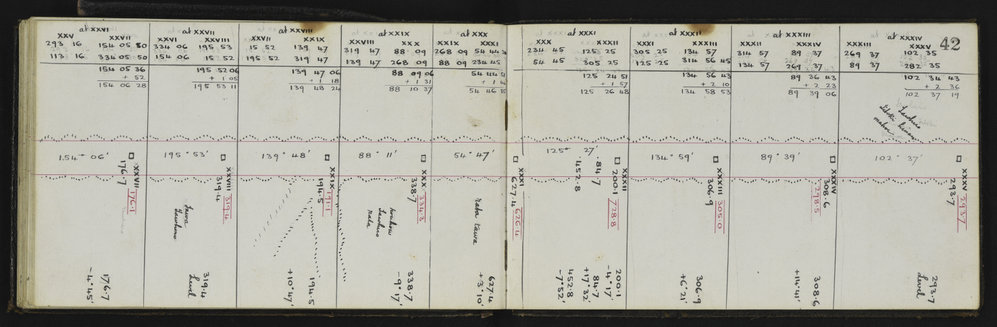 42
at XXVI
XXV XXVII
293 16 154 05 50
113 16 334 05 50
154 05 36
+ 52
154 06 28
154° 06'
XXVII
176.7
176.1
176.7
-4° 45'
at XXVII
XXVI XXVIII
334 06 195 53
154 06 15 52
195 52 06
+ 1 05
195 53 11
195° 53'
XXVIII
319.4
319.4
319.4
Level
at XXVIII
XXVII XXIX
15 52 139 47
195 52 319 47
139 47 06
+ 1 18
139 48 24
139° 48'
XXIX
194.5
191.1
194.5
+10° 47'
at XXIX
XXVIII XXX
319 47 88 09
139 47 268 09
88 09 06
+ 1 31
88 10 37
88° 11'
XXX
338.7
334.3
338.7
-9° 17'
at XXX
XXIX XXXI
268 09 54 44
88 09 234 45
54° 47'
XXXI
627.4
626.4
627.4
+3° 10'
at XXXI
XXX XXXII
234 45 125 25
54 45 305 25
125 24 51
+ 1 57
125 26 48
125° 27'
XXXII
200.1
728.8
84.7
452.8
200.1
-4° 17'
84.7
+17° 32'
452.8
-7° 52'
at XXXII
XXXI XXXIII
305 25 134 57
125 25 314 56 45
134 56 43
+ 2 10
134 58 53
134° 59'
XXXIII
306.9
305.0
306.9
+6° 21'
at XXXIII
XXXII XXXIV
314 57 89 37
134 57 269 37
89 36 43
+ 2 23
89 39 06
89° 39'
XXXIV
308.6
298.5
308.6
+14° 41'
at XXXIV
XXXIII XXXV
269 37 102 35
89 37 282 35
102 34 43
+ 2 36
102 37 19
102° 37'
XXXV
293.7
293.7
293.7
Level